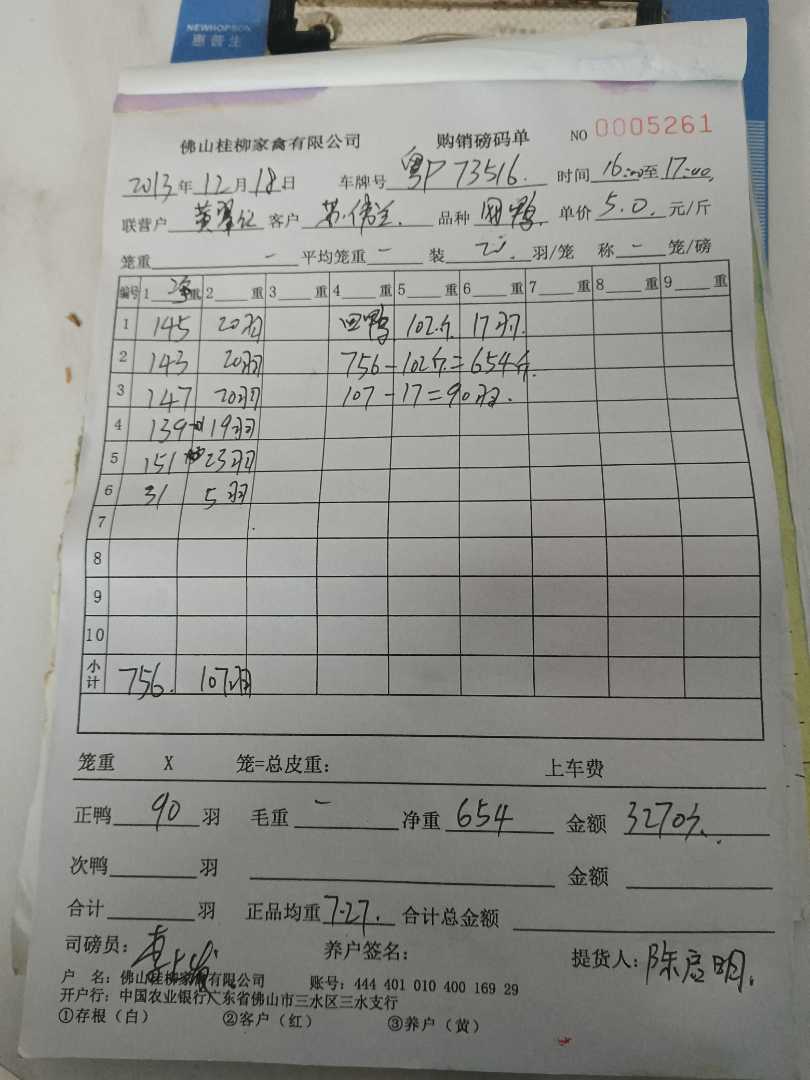 NEWHOPSON
惠普生
佛山桂柳家禽有限公司 购销磅码单 NO 0005261
2013年12月18日 车牌号 粤P73516. 时间 16:00至17:00.
联营户 客户 品种 鸭 单价 5.0. 元/斤
笼重 - 平均笼重 - 装 羽/笼 称 - 笼/磅
编号 1 净重 2 重 3 重 4 重 5 重 6 重 7 重 8 重 9 重
1 145 20羽 回鸭 102斤 17羽.
2 143 20羽 756-102斤=654斤.
3 147 20羽 107-17=90羽.
4 139 19羽
5 151 23羽
6 31 5羽
7
8
9
10
小计 756. 107羽
笼重 X 笼=总皮重: 上车费
正鸭 90 羽 毛重 - 净重 654 金额 3270元.
次鸭 羽 金额
合计 羽 正品均重 7.27. 合计总金额
司磅员: 养户签名: 提货人: 陈启明.
户 名: 佛山桂柳家禽有限公司 账号: 444 401 010 400 169 29
开户行: 中国农业银行广东省佛山市三水区三水支行
①存根(白) ②客户(红) ③养户(黄)